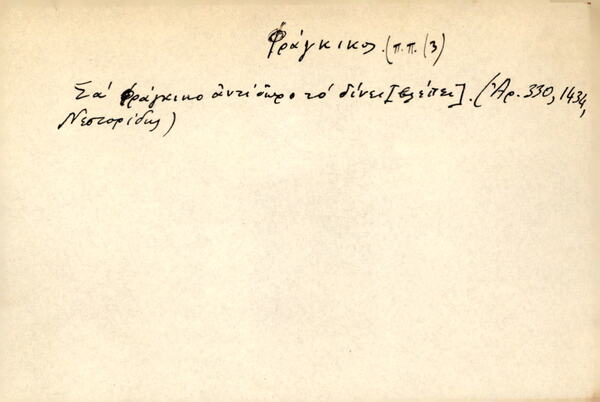 Φράγκικος. (π.π. (3)
Σά φράγκικο ἀντίδωρο τό δίνει [βλέπει]. (Ἀρ. 330, 1434,
Νεστορίδης)